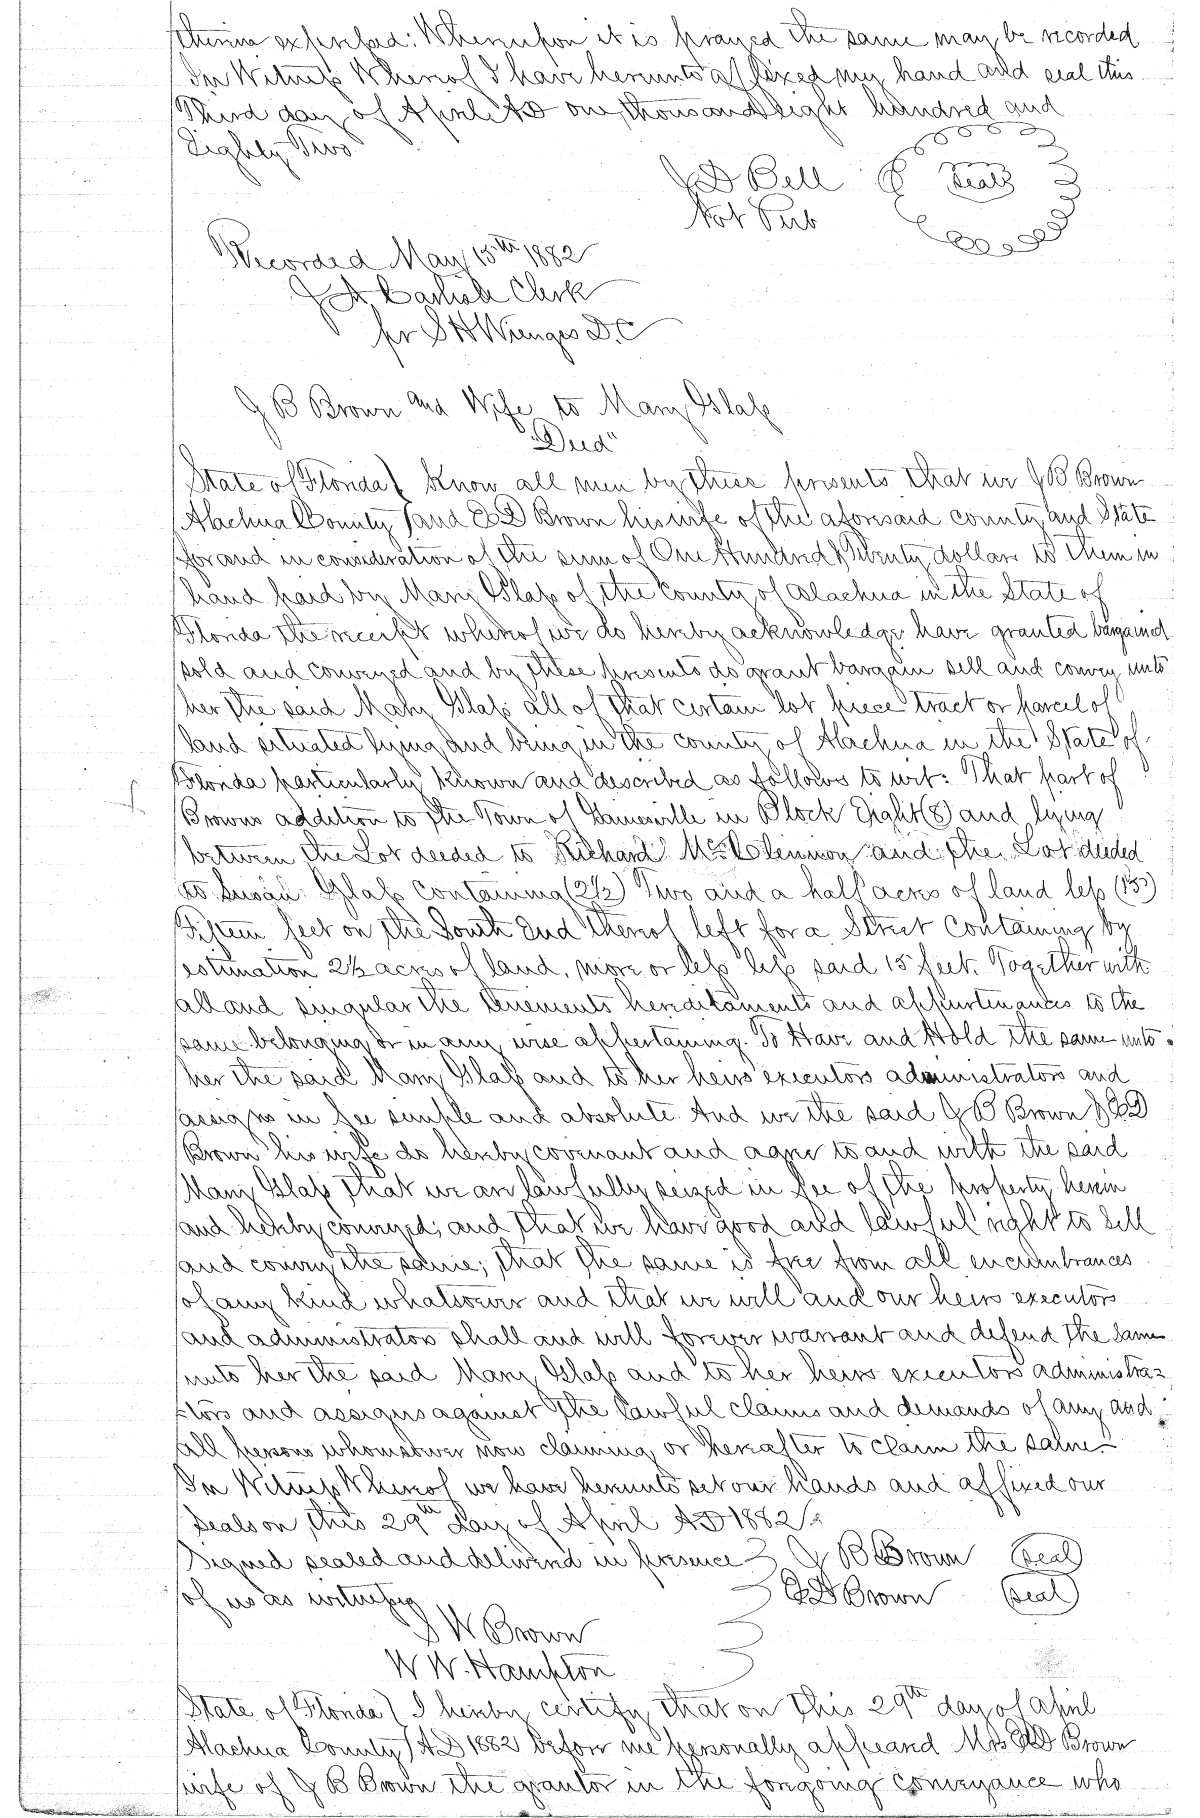 therein expressed: Whereupon it is prayed the same may be recorded
In Witness Whereof I have hereunto affixed my hand and seal this
Third day of April AD one thousand eight hundred and
Eighty Two
J D Bell
Seal
Not Pub
Recorded May 15th 1882
J A Carlisle Clerk
for S H Wienges D.C
J B Brown and Wife to Mary Glass
"Deed"
State of Florida } Know all men by these presents that we J B Brown
Alachua County } and E D Brown his wife of the aforesaid county and State
for and in consideration of the sum of One Hundred & Twenty dollars to them in
hand paid by Mary Glass of the County of Alachua in the State of
Florida the receipt whereof we do hereby acknowledge have granted bargained
sold and conveyed and by these presents do grant bargain sell and convey unto
her the said Mary Glass all of that certain lot piece tract or parcel of
land situated lying and being in the county of Alachua in the State of
Florida particularly known and described as follows to wit: That part of
Browns addition to the Town of Gainesville in Block Eight (8) and lying
between the Lot deeded to Richard McClennon and the Lot deeded
to Susan Glass Containing (2½) Two and a half acres of land less (15)
Fifteen feet on the South End thereof left for a Street Containing by
estimation 2½ acres of land, more or less less said 15 feet. Together with
all and singular the tenements hereditaments and appurtenances to the
same belonging or in any wise appertaining. To Have and Hold the same unto
her the said Mary Glass and to her heirs executors administrators and
assigns in fee simple and absolute And we the said J B Brown & E D
Brown his wife do hereby covenant and agree to and with the said
Mary Glass that we are lawfully seized in fee of the property herein
and hereby conveyed; and that we have good and lawful right to sell
and convey the same; that the same is free from all encumbrances
of any kind whatsoever and that we will and our heirs executors
and administrators shall and will forever warrant and defend the same
unto her the said Mary Glass and to her heirs executors administra=
tors and assigns against the lawful claims and demands of any and
all persons whomsoever now claiming or hereafter to claim the same
In Witness Whereof we have hereunto set our hands and affixed our
seals on this 29th day of April AD 1882.
Signed sealed and delivered in presence } J B Brown (seal)
of us as witnesses } E D Brown (seal)
S W Brown
W W. Hampton }
State of Florida } I hereby certify that on this 29th day of April
Alachua County } AD 1882 before me personally appeared Mrs E D Brown
wife of J B Brown the grantor in the forgoing conveyance who